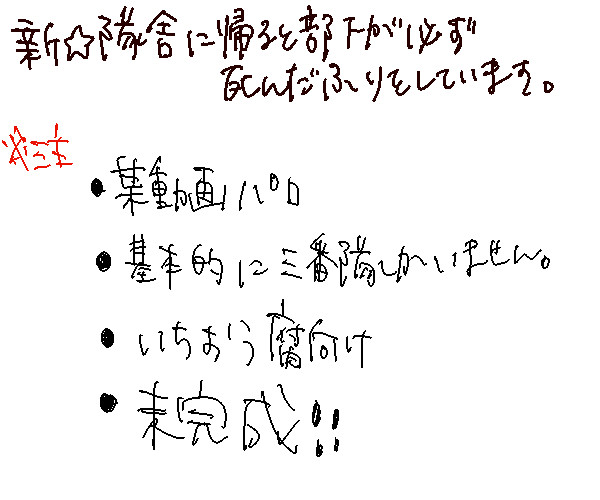 新☆隊舎に帰ると部下が必ず
死んだふりをしています。
※注
●某動画パロ
●基本的に三番隊しかいません。
●いちおう腐向け
●未完成!!